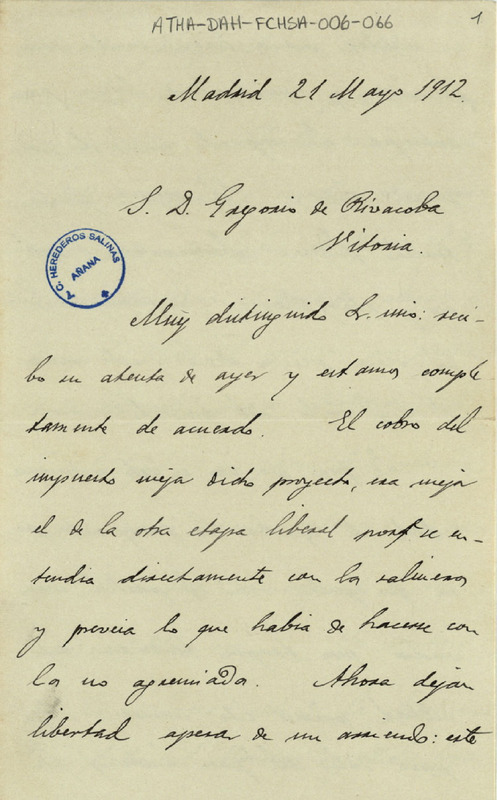 ATHA-DAH-FCHSA-006-066
1
Madrid 21 Mayo 1912.
S. D. Gregorio de Rivacoba
Vitoria.
A. C. HEREDEROS SALINAS
AÑANA
Muy distinguido Sr. mio: reci-
bo su atenta de ayer y estamos comple
tamente de acuerdo. El cobro del
impuesto mejor dicho proyecto, era mejor
el de la otra etapa liberal porq. se en-
tendia directamente con los salineros
y preveia lo que habia de hacerse con
los no agremiados. Ahora dejan
libertad apesar de un arriendo: este